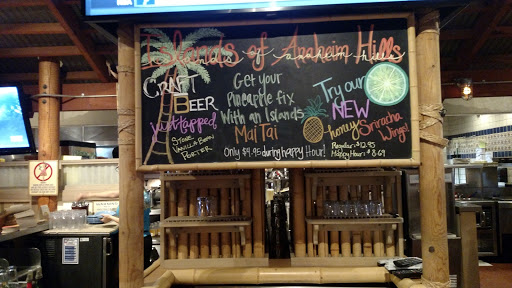 Islands of Anaheim Hills
CRAFT
BEER
Just Tapped
STONE
VANILLA BEAN
PORTER
Get your
Pineapple fix
With an Islands
Mai Tai
Only $4.95 during happy Hour!
Try our
NEW
honey Sriracha
Wings!
Regular: $12.95
Happy Hour: $8.69